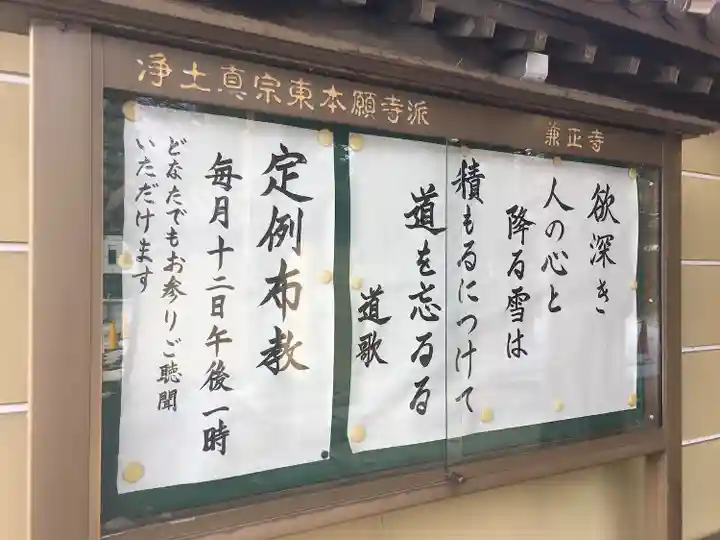 浄土真宗東本願寺派
兼正寺
欲深き
人の心と
降る雪は
積もるにつけて
道を忘るる
道歌
定例布教
毎月十二日午後一時
どなたでもお参りご聴聞
いただけます